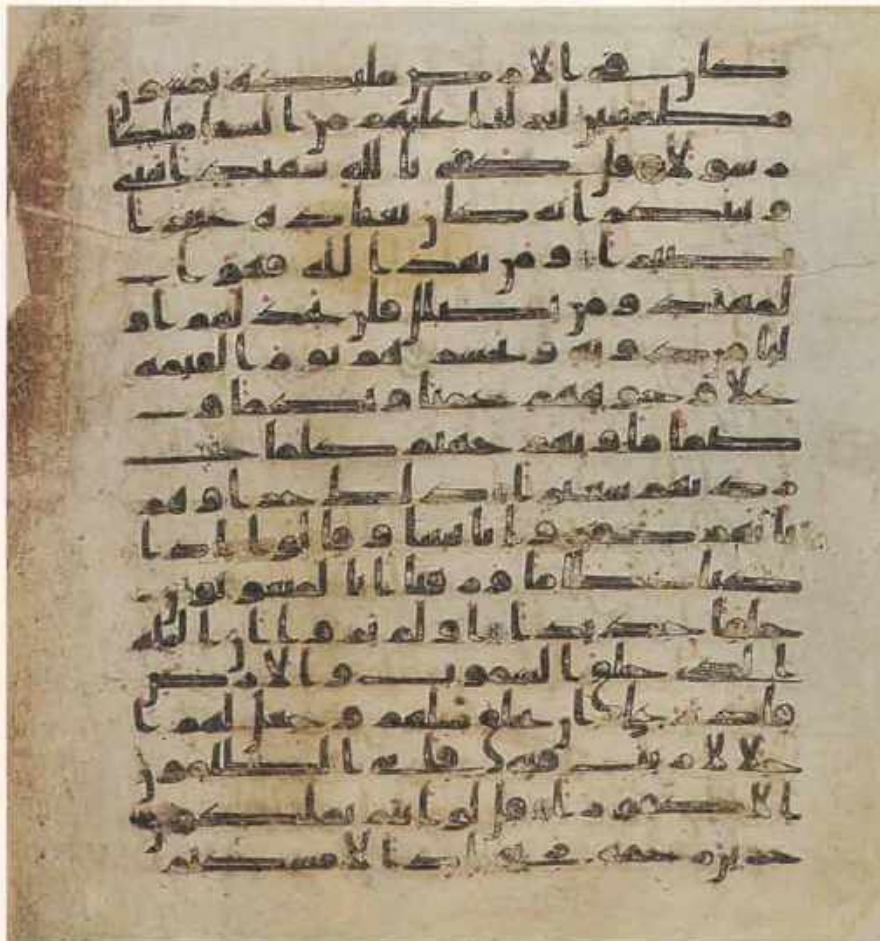 كان في الارض مليكة يمشون
مطمنين لنزلنا عليهم من السما ملكا
رسولا قل كفى بالله شهيدا بيني
وبينكم انه كان بعباده خبيرا
بصيرا ومن يهد الله فهو ا
لمهتد ومن يضلل فلن تجد لهم او
ليا من دونه ونحشرهم يوم القيمه
علا وجوههم عميا وبكما و
صما ماويهم جهنم كلما خبت
زدنهم سعيرا ذلك جزاوهم
بانهم كفروا باييتنا وقالوا اذا
كنا عظما ورفتا انا لمبعوثون
خلقا جديدا اولم يروا ان الله
الذي خلق السموت والارض
قادر على ان يخلق مثلهم وجعل لهم ا
جلا لا ريب فيه فابى الظلمون
الا كفورا قل لو انتم تملكون
خزاين رحمه ربي اذا لامسكتم